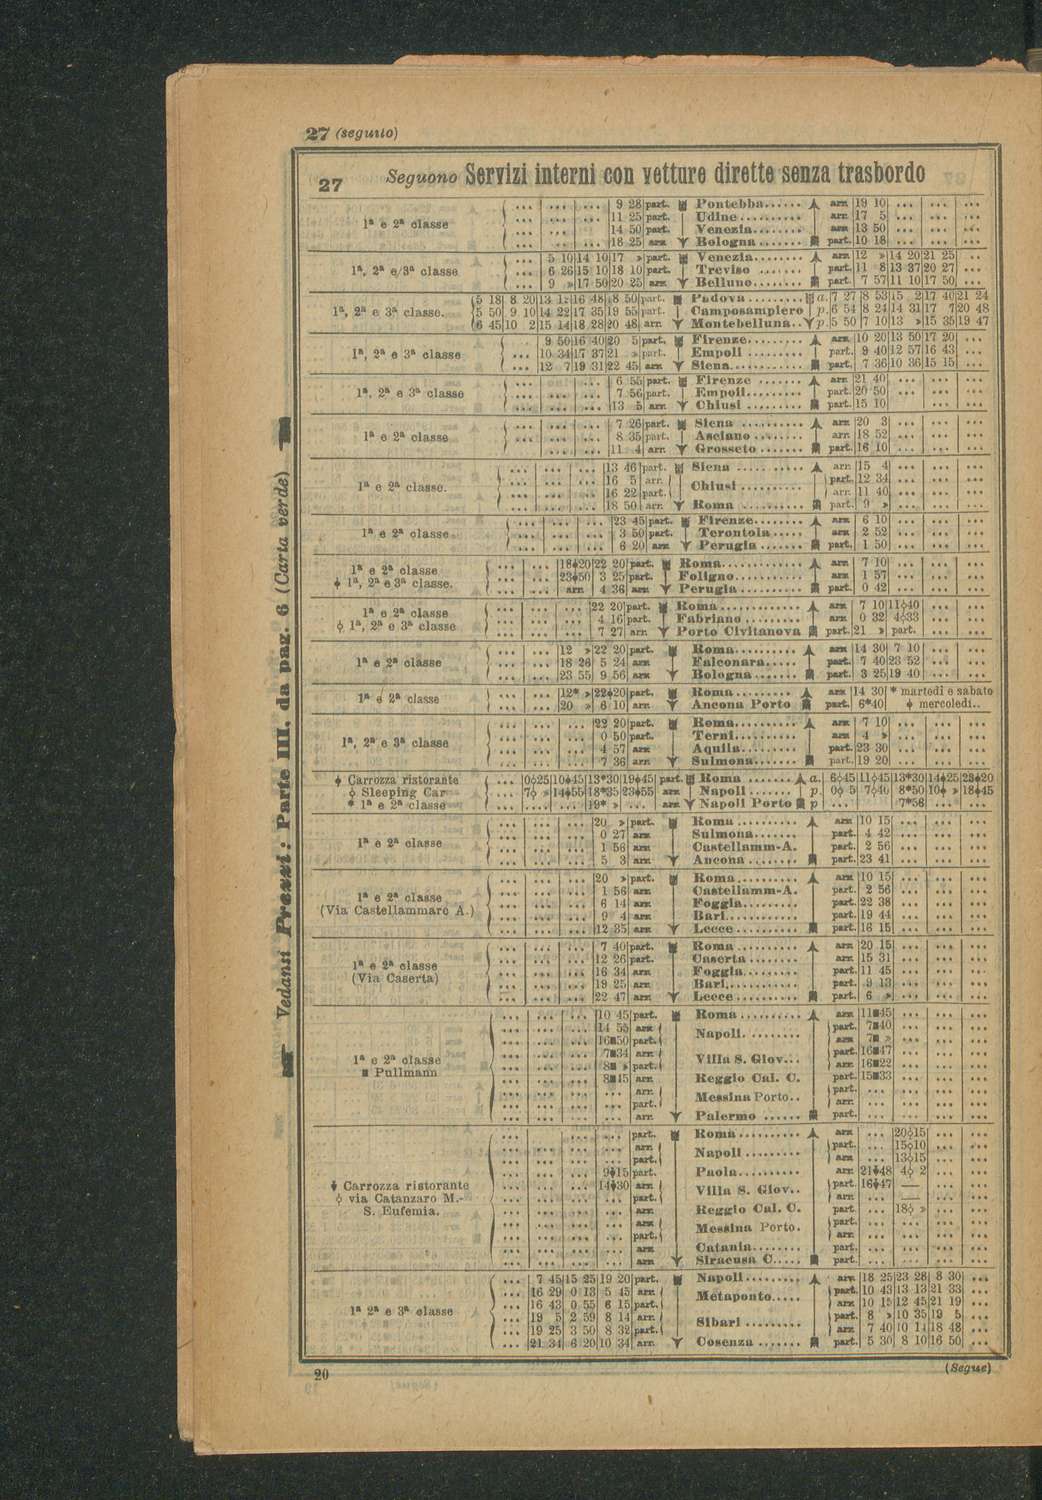 27 (seguito)
27 Seguono Servizi interni con vetture dirette senza trasbordo
1ª e 2ª classe
... ... ... 9 28 part. Pontebba...... arr. 19 10 ... ... ...
... ... ... 11 25 part. Udine.......... arr. 17 5 ... ... ...
... 14 50 part. Venezia........ arr. 13 50 ... ... ...
... ... 18 25 arr. Bologna....... part. 10 18 ... ... ...
1ª, 2ª e 3ª classe
... 5 10 14 10 17 » part. Venezia........ arr. 12 » 14 20 21 25 ...
... 6 26 15 10 18 10 part. Treviso ....... part. 11 8 13 37 20 27 ...
... 9 » 17 50 20 25 arr. Belluno........ part. 7 57 11 10 17 50 ...
1ª, 2ª e 3ª classe.
5 18 8 20 13 12 16 48 18 50 part. Padova ......... a. 7 27 8 53 15 2 17 40 21 24
5 50 9 10 14 22 17 35 19 55 part. Camposampiero p. 6 54 8 24 14 31 17 7 20 48
6 45 10 2 15 14 18 28 20 48 arr. Montebelluna.. p. 5 50 7 10 13 » 15 35 19 47
1ª, 2ª e 3ª classe
9 50 16 40 20 5 part. Firenze........ arr. 10 20 13 50 17 20 ...
... 10 34 17 37 21 » part. Empoli ........ part. 9 40 12 57 16 43 ...
... 12 7 19 31 22 45 arr. Siena........... part. 7 36 10 36 15 15 ...
1ª, 2ª e 3ª classe
... ... ... 6 55 part. Firenze ....... arr. 21 40 ... ...
... ... ... 7 56 part. Empoli......... part. 20 50 ... ...
... ... ... 13 5 arr. Chiusi ......... part. 15 10 ... ...
1ª e 2ª classe
... ... ... 7 26 part. Siena .......... arr. 20 3 ... ... ...
... ... ... 8 35 part. Asciano ........ arr. 18 52 ... ... ...
... ... ... 11 4 arr. Grosseto ....... part. 16 10 ... ... ...
1ª e 2ª classe.
... ... ... 13 46 part. Siena ........... arr. 15 4 ... ... ...
... ... ... 16 5 arr. Chiusi .......... part. 12 34 ... ... ...
... ... ... 16 22 part. arr. 11 40 ... ... ...
... ... ... 18 50 arr. Roma ........... part. 9 » ... ... ...
1ª e 2ª classe
... ... ... 23 45 part. Firenze........ arr. 6 10 ... ... ...
... ... ... 3 50 part. Terontola..... arr. 2 52 ... ... ...
... ... ... 6 20 arr. Perugia ....... part. 1 50 ... ... ...
1ª e 2ª classe
1ª, 2ª e 3ª classe.
... ... 18 20 22 20 part. Roma........... arr. 7 10 ... ... ...
... ... 23 50 3 25 part. Foligno......... arr. 1 57 ... ... ...
... ... arr. 4 36 arr. Perugia ........ part. 0 42 ... ... ...
1ª e 2ª classe
ϕ 1ª, 2ª e 3ª classe
... ... ... 22 20 part. Roma............ arr. 7 10 11ϕ40 ... ...
... ... ... 4 16 part. Fabriano ....... arr. 0 32 4ϕ33 ... ...
... ... ... 7 27 arr. Porto Civitanova part. 21 » part. ... ...
1ª e 2ª classe
... ... 12 » 22 20 part. Roma.......... arr. 14 30 7 10 ... ...
... ... 18 26 5 24 arr. Falconara..... part. 7 40 23 52 ... ...
... ... 23 55 9 56 arr. Bologna....... part. 3 25 19 40 ... ...
1ª e 2ª classe
... ... 12* » 22 20 part. Roma.......... arr. 14 30 * martedì e sabato
... ... 20 » 6 10 arr. Ancona Porto part. 6*40 mercoledì..
1ª, 2ª e 3ª classe
... ... ... 22 20 part. Roma.......... arr. 7 10 ... ... ...
... ... ... 0 50 part. Terni........... arr. 4 » ... ... ...
... ... ... 4 57 arr. Aquila.......... part. 23 30 ... ... ...
... ... ... 7 36 arr. Sulmona....... part. 19 20 ... ... ...
Carrozza ristorante
ϕ Sleeping Car
* 1ª e 2ª classe
... 0ϕ25 10 45 13*30 19 45 part. Roma ....... a. 6ϕ45 11 45 13*30 14 25 23 20
... 7ϕ » 14 55 18*35 23 55 arr. Napoli ....... p. 0ϕ 5 7ϕ40 8*50 10 » 18 45
... ... ... 19* » ... arr. Napoli Porto p ... 7*56 ... ...
1ª e 2ª classe
... ... ... 20 » part. Roma .......... arr. 10 15 ... ... ...
... ... ... 0 27 arr. Sulmona....... part. 4 42 ... ... ...
... ... ... 1 56 arr. Castellamm-A. part. 2 56 ... ... ...
... ... ... 5 3 arr. Ancona ........ part. 23 41 ... ... ...
1ª e 2ª classe
(Via Castellammare A.)
... ... ... 20 » part. Roma.......... arr. 10 15 ... ... ...
... ... ... 1 56 arr. Castellamm-A. part. 2 56 ... ... ...
... ... ... 6 14 arr. Foggia.......... part. 22 38 ... ... ...
... ... ... 9 4 arr. Bari............ part. 19 44 ... ... ...
... ... ... 12 35 arr. Lecce .......... part. 16 15 ... ... ...
1ª e 2ª classe
(Via Caserta)
... ... ... 7 40 part. Roma .......... arr. 20 15 ... ... ...
... ... ... 12 26 part. Caserta ........ arr. 15 31 ... ... ...
... ... ... 16 34 arr. Foggia.......... part. 11 45 ... ... ...
... ... ... 19 25 arr. Bari............ part. 9 13 ... ... ...
... ... ... 22 47 arr. Lecce .......... part. 6 » ... ... ...
1ª e 2ª classe
■ Pullmann
... ... ... 10 45 part. Roma .......... arr. 11■45 ... ... ...
... ... ... 14 55 arr. Napoli. ........ part. 7■40 ... ... ...
... ... ... 16■50 part. arr. 7■ » ... ... ...
... ... ... 7■34 arr. Villa S. Giov... part. 16■47 ... ... ...
... ... ... 8■ » part. arr. 16■22 ... ... ...
... ... ... 8■45 arr. Reggio Cal. C. part. 15■33 ... ... ...
... ... ... ... arr. Messina Porto.. part. ... ... ... ...
... ... ... ... part. arr. ... ... ... ...
... ... ... ... arr. Palermo ...... part. ... ... ... ...
Carrozza ristorante
ϕ via Catanzaro M.-
S. Eufemia.
... ... ... ... part. Roma .......... arr. ... 20ϕ15 ... ...
... ... ... ... arr. Napoli .......... part. ... 15ϕ10 ... ...
... ... ... ... part. arr. ... 13ϕ15 ... ...
... ... ... 9 15 part. Paola........... arr. 21 48 4ϕ 2 ... ...
... ... ... 14 30 arr. Villa S. Giov.. part. 16 47 — ... ...
... ... ... ... part. arr. ... — ... ...
... ... ... ... arr. Reggio Cal. C. part. ... 18ϕ » ... ...
... ... ... ... arr. Messina Porto. part. ... ... ... ...
... ... ... ... part. arr. ... ... ... ...
... ... ... ... arr. Catania........ part. ... ... ... ...
... ... ... ... arr. Siracusa C..... part. ... ... ... ...
1ª 2ª e 3ª classe
... 7 45 15 25 19 20 part. Napoli.......... arr. 18 25 23 28 8 30 ...
... 16 29 0 13 5 45 arr. Metaponto..... part. 10 43 13 13 21 33 ...
... 16 43 0 55 6 15 part. arr. 10 15 12 45 21 19 ...
... 19 5 2 59 8 14 arr. Sibari ......... part. 8 » 10 35 19 5 ...
... 19 25 3 50 8 32 part. arr. 7 40 10 14 18 48 ...
... 21 34 6 20 10 34 arr. Cosenza ....... part. 5 30 8 10 16 50 ...
Vedansi Prezzi: Parte III, da pag. 6 (Carta verde)
20
(Segue)